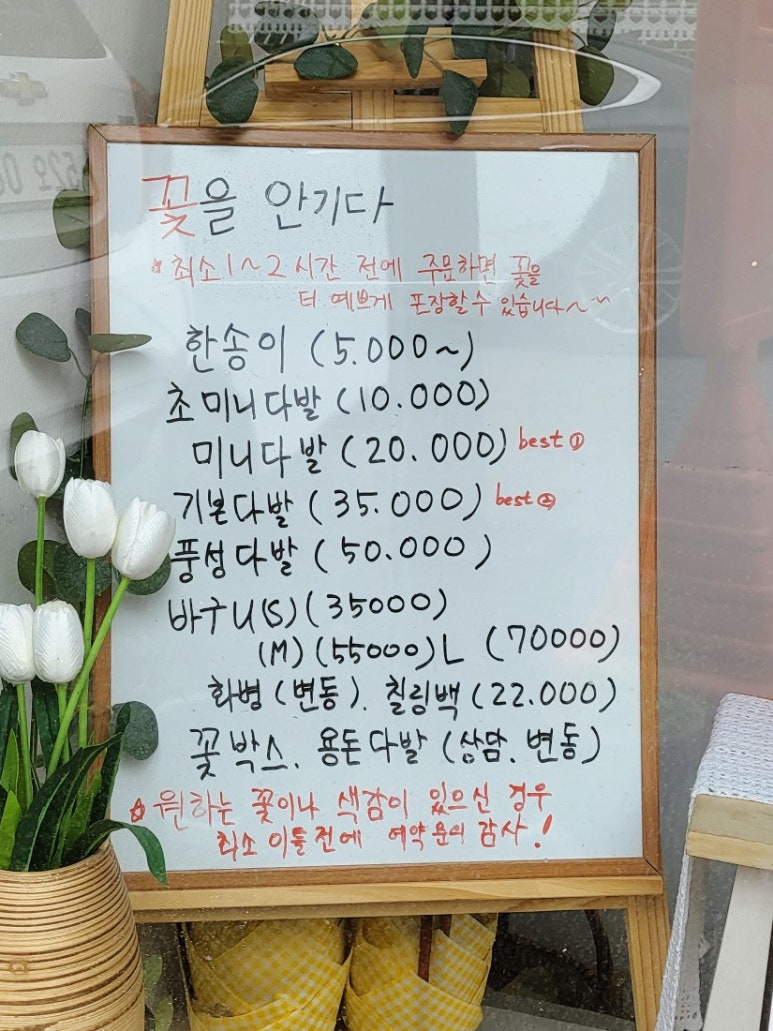 꽃을 안기다
☆ 최소 1~2시간 전에 주문하면 꽃을
더 예쁘게 포장할 수 있습니다~
한송이 (5.000~)
초미니다발 (10.000)
미니다발 (20.000) best ①
기본다발 (35.000) best ②
풍성다발 (50.000)
바구니(S) (35000)
(M) (55000) L (70000)
화병 (변동). 칠링백 (22.000)
꽃박스. 용돈다발 (상담. 변동)
☆ 원하는 꽃이나 색감이 있으신 경우
최소 이틀전에 예약문의 감사!